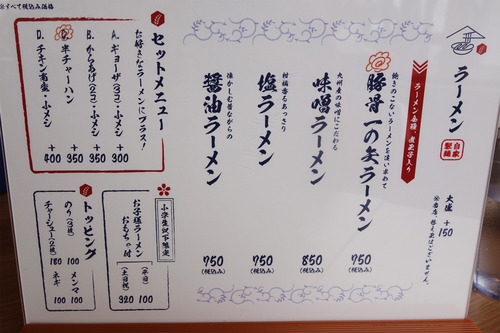 ※すべて税込み価格
ラーメン
自家製麺
大盛 +150
※当店、替え玉はございません。
ラーメン各種、煮玉子入り
飽きのこないラーメンを追い求めて
豚骨一の矢ラーメン
750
(税込み)
九州産の味噌にこだわる
味噌ラーメン
850
(税込み)
柑橘香るあっさり
塩ラーメン
750
(税込み)
懐かしむ昔ながらの
醤油ラーメン
750
(税込み)
セットメニュー
お好きなラーメンにプラス!
A. ギョーザ(3コ)・小メシ +300
B. からあげ(2コ)・小メシ +350
C. 半チャーハン +350
D. チキン南蛮・小メシ +400
小学生以下限定
お子様ラーメン
おもちゃ付
(平日) 100
(土日祝) 320
トッピング
のり(3枚) 100
メンマ 100
チャーシュー(2枚) 180
ネギ 100